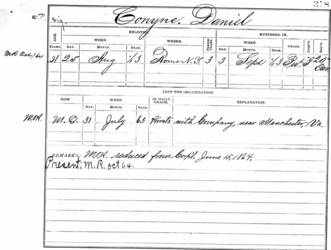 378
Conyne, Daniel
AGE. ENLISTED MUSTERED IN.
WHEN. WHERE. WHEN. GRADE.
DAY. MONTH. YEAR. DAY. MONTH. YEAR.
31 25 Aug '63 Rome N.Y. 3 3 Sept '63 Pvt F 20 Cav
LEFT THE ORGANIZATION.
HOW WHEN. IN WHAT GRADE. EXPLANATION.
DAY. MONTH. YEAR.
M.R. M.O. 31 July 65 Private with Company, near Manchester, Va.
REMARKS: M.R. reduced from Corpl. June 15, 1864.
Present, M.R. Oct 64.